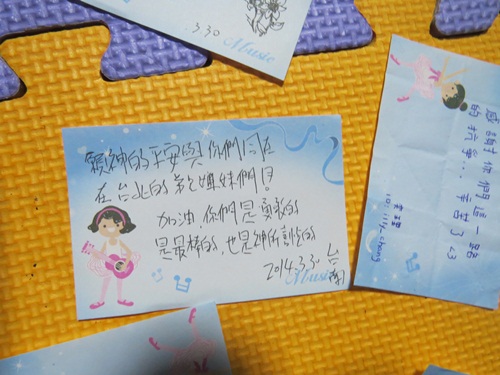 3.30
Music
願神的平安與你們同在
在台北的弟兄姊妹們!
加油 你們是勇敢的
是最棒的,也是神所
2014.3.30
Music
感謝你們這一路
的抗爭... 辛苦了